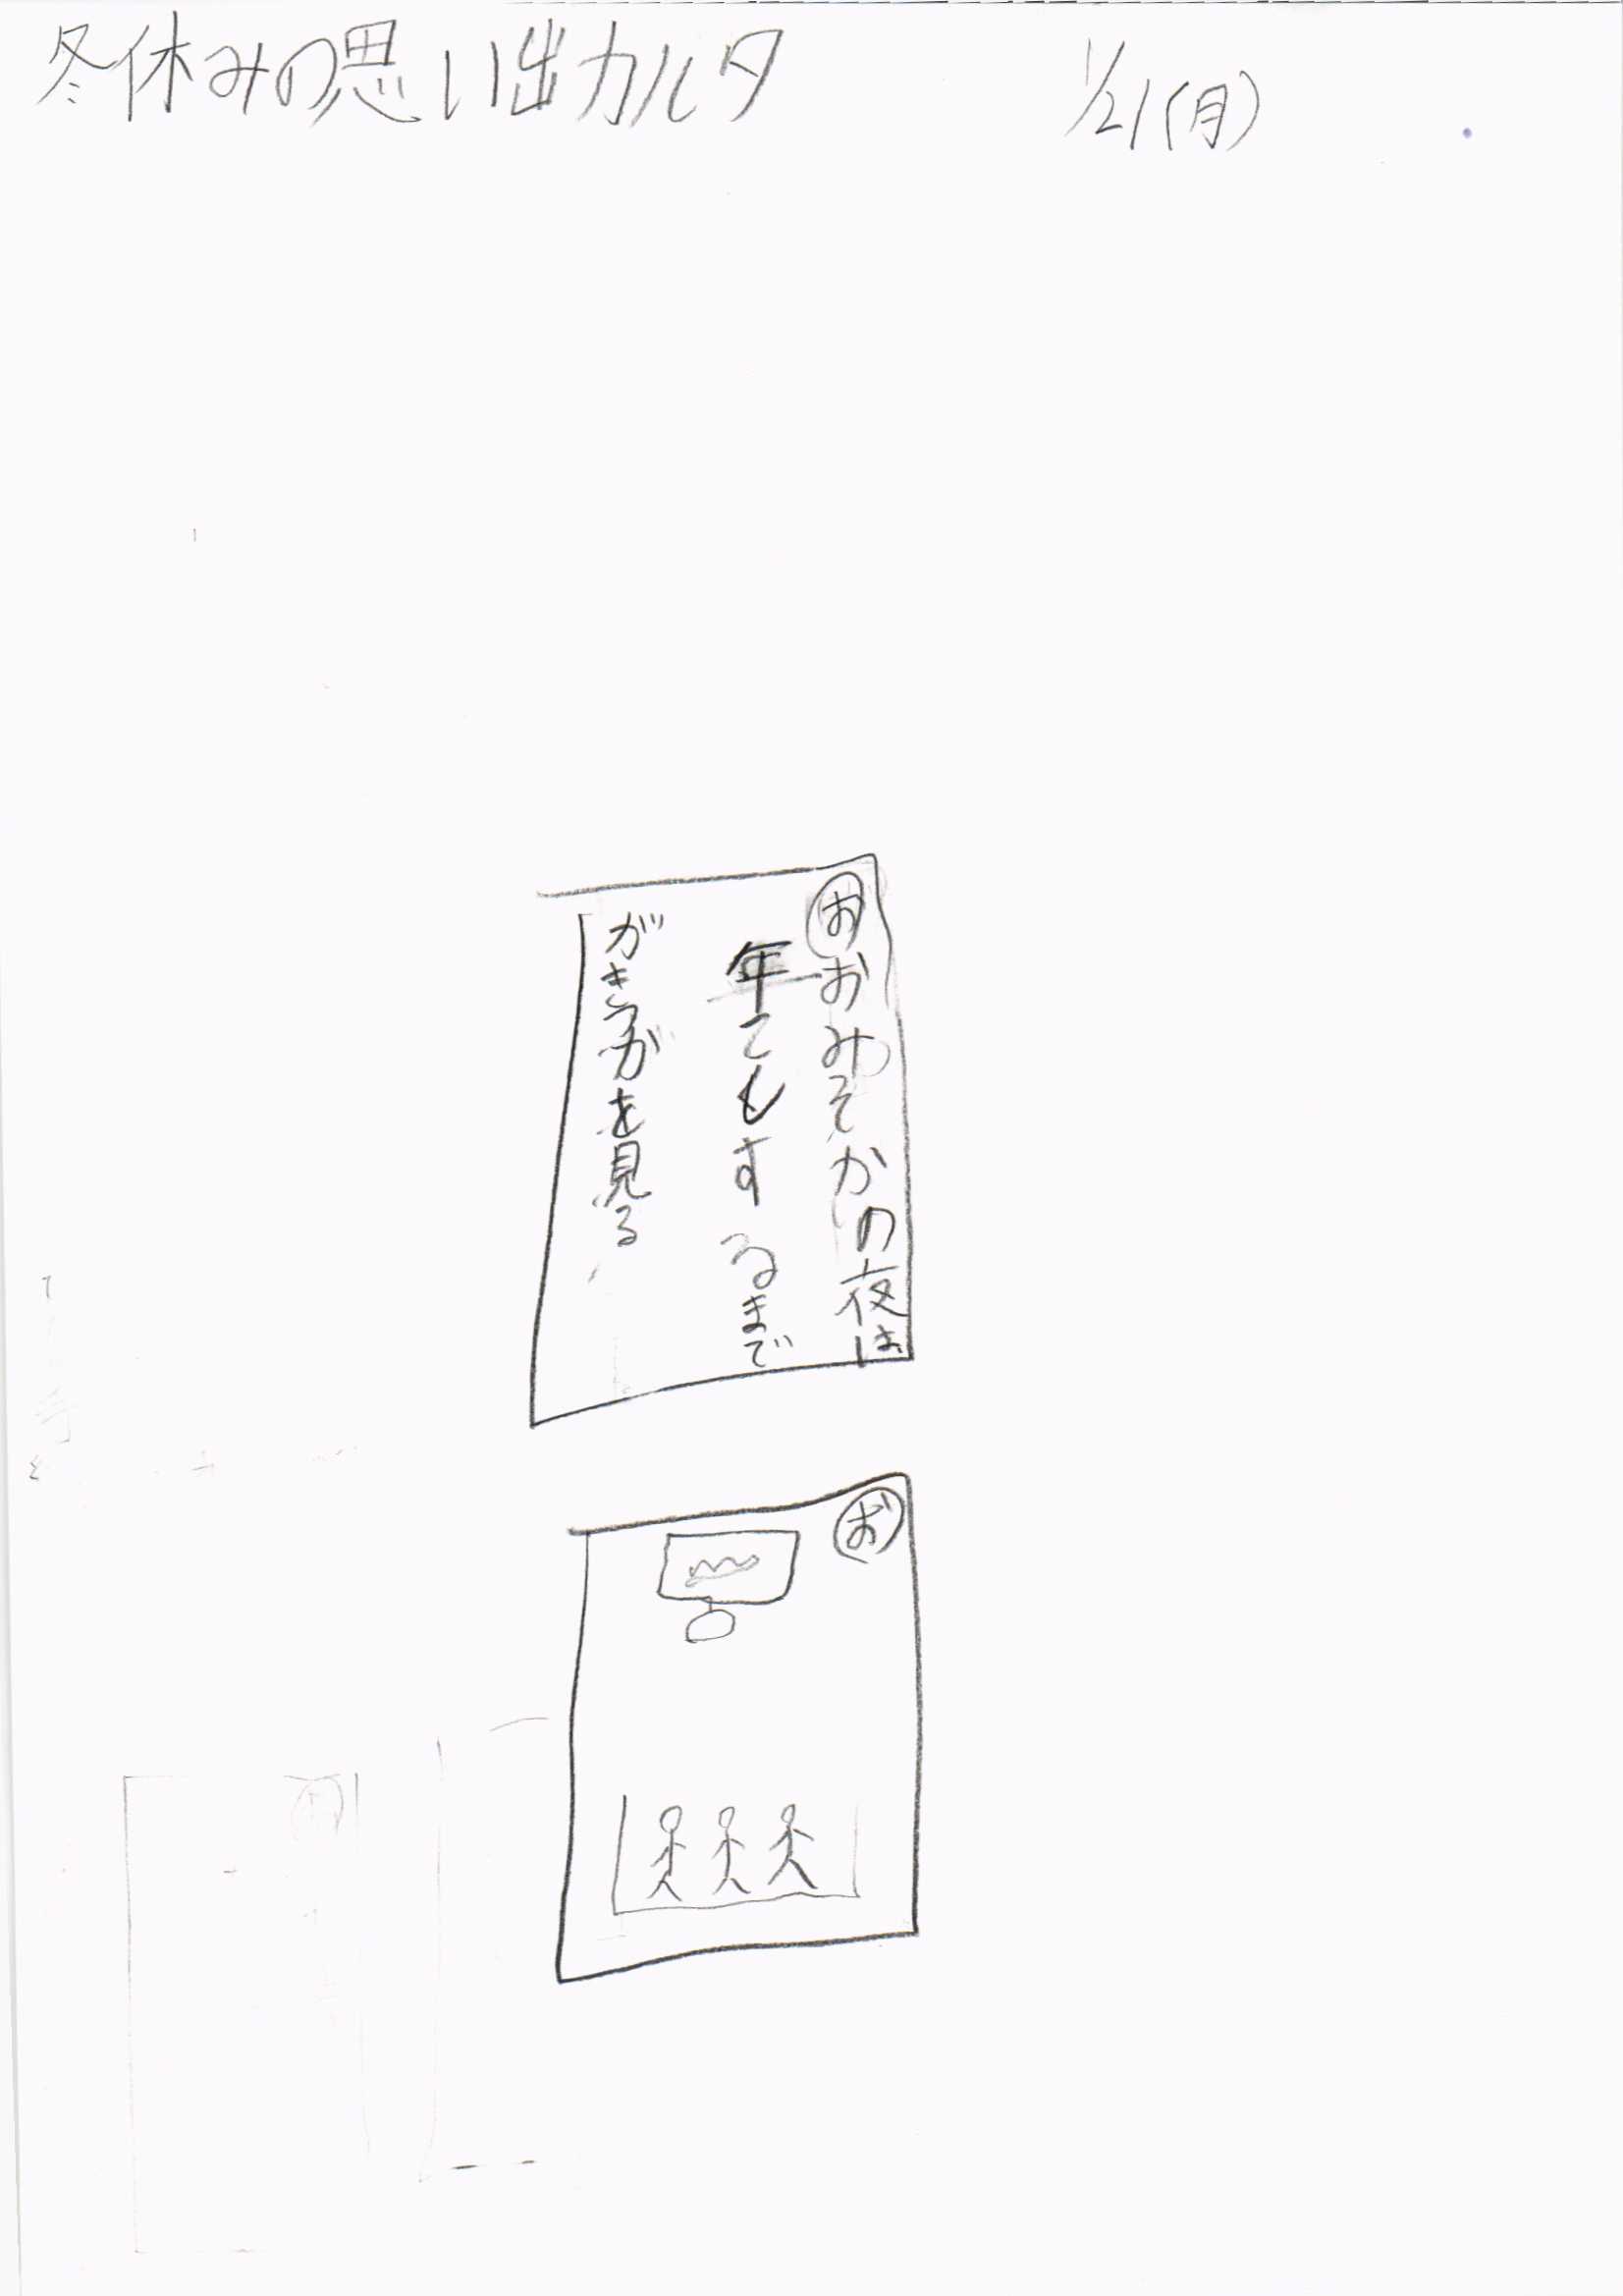 冬休みの思い出カルタ
1/21(月)
お
おみそかの夜は
年こもするまで
がきつかを見る
お